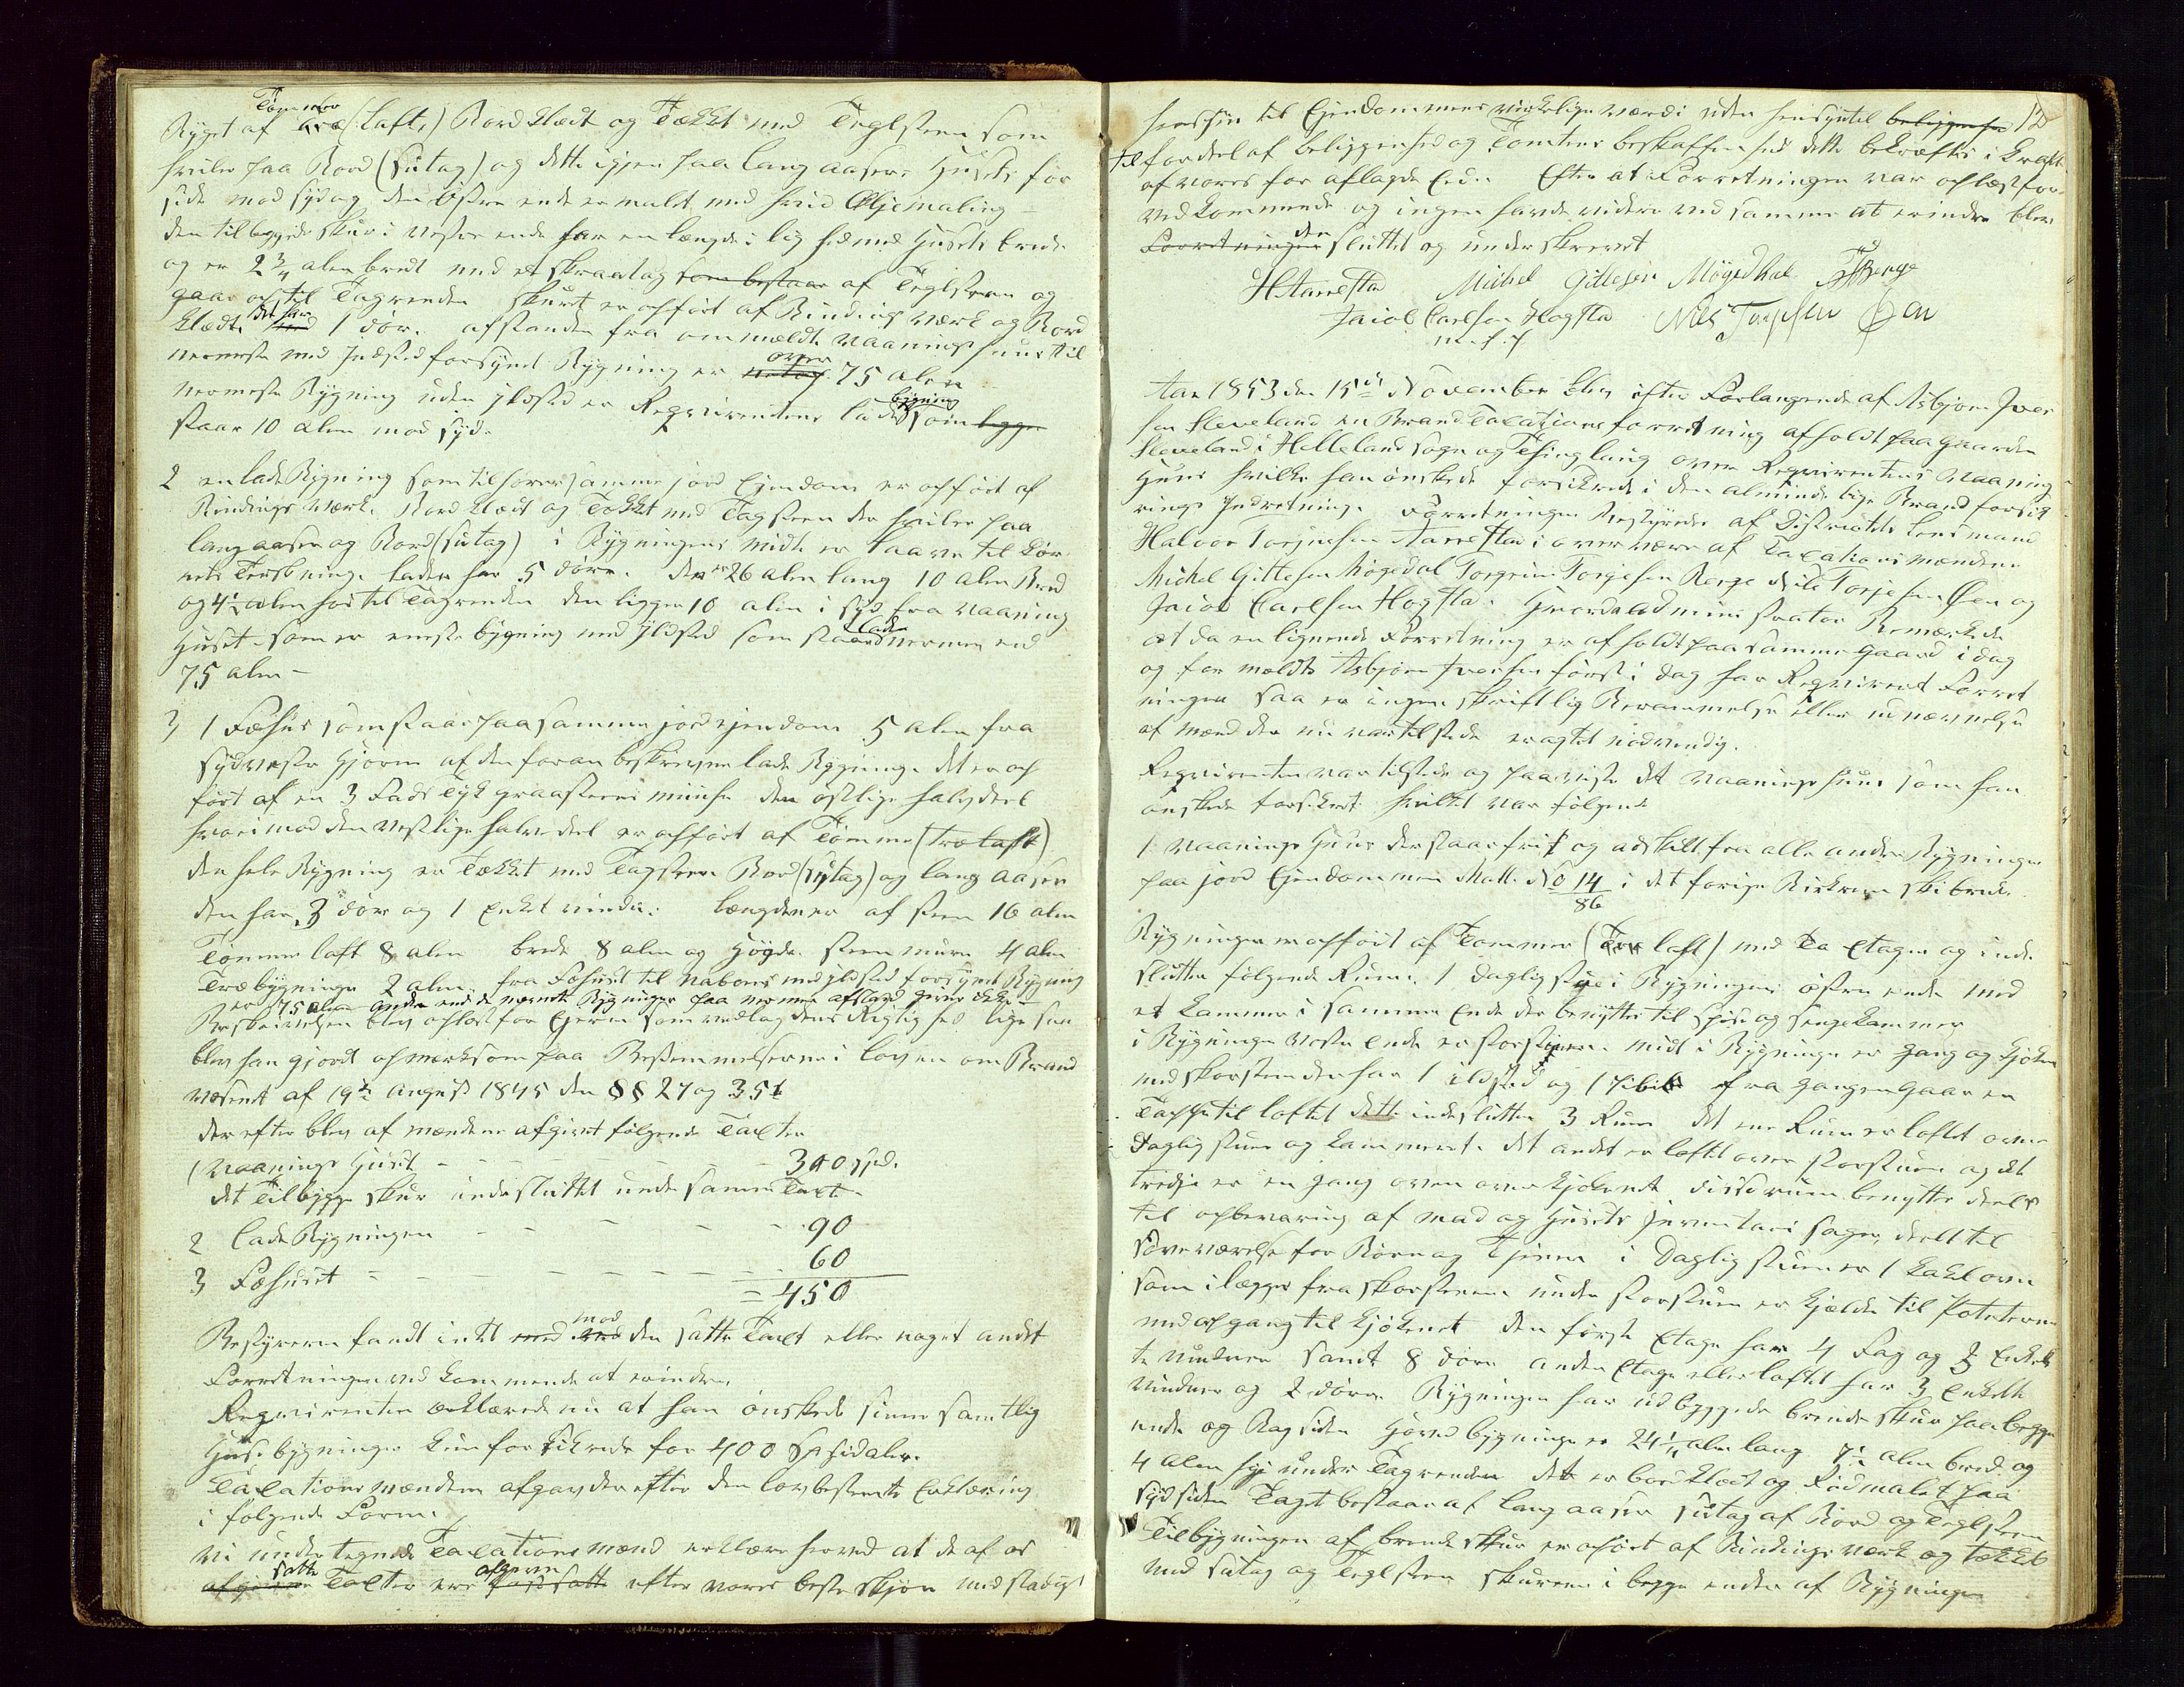 Tømmer
Bygt af træ (laft,) Bordklædt og Tækket med Teglsteen som
hviler paa Bord (sutag) og dette igjen paa lang aaser. Husets for
side mod syd og den østre ende er malet med hvid Oljemaling
den tilbyggede skur i vestre ende har en længde i lighed med Husets brede
og er 2 3/4 alen bredt med et skraatag som bestaar af Teglsteen og
gaar op til Tagrenden skuret er opført af Bindings værk og Bord
klædt. det har 1 dør. afstanden fra ommeldte vaaningshuus til
nermeste med Ildsted forsynet Bygning er over 75 alen
nermeste Bygning uden ildsted er Reqvirentens lade bygning som ligge
staar 10 alen mod syd.
2 en lade Bygning som tilhører samme jord Ejendom er opført af
Bindings værk. Bord klædt og Tækket med Tagsteen der hviler paa
lang aaser og Bord (sutag) i Bygningens midte er Laave til kor
nets Terskning. laden har 5 døre. den er 26 alen lang 10 alen Bred
og 4 1/2 alen høi til Tagrenden den ligger 10 alen i syd fra vaaning
Huset som er eneste bygning med Ildsted som staar laden nermere end
75 alen -
3 1 Fæhus som staar paa samme jord ejendom 5 alen fra
sydvestre Hjørne af den foran beskrevne lade Bygning. det er op
ført af en 3 Fods Tyk graasteens muur den østlige halvdeel
hvorimod den vestlige halvdeel er opført af Tømmer (træ laft)
den hele Bygning er Tækket med Tagsteen Bord (sutag) og lang aaser
den har 3 dør og 1 Enkelt vindu. længden er af steen 16 alen
Tømmer laft 8 alen brede 8 alen og Høyde steen muren 4 alen
Træbygninge 2 alen. fra Fæhuset til naboens med ildsted forsynet Bygning
er 75 alen andre end de nævnte Bygninger paa nermere afstand gives ikke.
Beskrivelsen blev oplæst for Ejeren som vedtog dens Rigtighed, lige saa
blev han gjordt opmærksom paa Bestemmelserne i loven om Brand
væsenet af 19de August 1845 den §§ 27 og 35t
der efter blev af mændene afgivet følgende Taxter
1 Vaanings Huset - - - - - - 300 spd.
det Tilbygge skur indesluttet unde samme Taxt
2 lade Bygningen - - - - - 90
3 Fæhuset - - - - - - - 60
= 450
Bestyreren fandt intet mod den satte Taxt eller noget andet
Forretningen ved kommende at erindre.
Reqvirenten erklærede nu at han ønskede sinne samtlig
Huse bygninger kun forsikrede for 400 Spesidaler.
Taxationsmændene afgav der efter den lovbestemte Erklæring
i følgende Form.
vi undertegnede Taxationsmænd erklære herved at de af os
afgivne satte Taxter ere fastsatte afgivne efter vores beste skjøn med stadigt
hensyn til Ejendommens virkelige værdi uden hensyn til beliggenhe 12
til fordeel af beliggenhed og Tomtens beskaffenhed dette bekræftes i kraft
af vores før aflagde Ed. Efter at Forretningen var oplæst for
vedkommende og ingen havde videre ved samme at erindre blev
Forretningen den sluttet og underskrevet
H Aarrestad Michel Gitlesen Møgedal TT Berge
Jacob Carlsen Hogstad Niels Torjesen Øen
m. f. P
Aar 1853 den 15de November blev efter Forlangende af Asbjørn Iver
sen Sleveland en Brand Taxationsforretning afholdt paa gaarden
Sleveland i Helleland sogn og Thinglaug over Reqvirentens Vaaning
Huus hvilke han ønskede forsikrede i den almindelige Brandforsik
rings Indretning. Forretningen Bestyredes af Districtets Lensmand
Halvor Torjusen Aarrestad i overvære af Taxationsmændene
Michel Gitlesen Møgedal Torgrim Torgesen Berge Niels Torjesen Øen og
Jacob Carlsen Hogstad. Huusadministrator Bemærkede
at da en lignende Forretning er afholdt paa samme gaard i dag
og formeldte Asbjørn Iversen først i dag har Reqvireret Forret
ningen saa er ingen skriftlig Berammelse eller udnævnelse
af mænd der nu var tilstede eragtet nødvendig.
Reqvirenten var tilstede og paaviste det vaaningshuus som han
ønskede forsikret hvilket var følgende
1 Vaanings Huus der staar frit og adskilt fra alle andre Bygninger
paa jord Ejendommen Matr. No 14/86 i det forrige Birkrem skibrede.
Bygningen er opført af Tømmer (Træ laft) med To etager og inde
slutter følgende Rum. 1 dagligstue i Bygningens østre ende med
et kammer i samme Ende der benyttes til spise og sengekammer
i Bygningens vestre Ende er storstuen. midt i Bygningen er gang og kjøken
med skorsten den har 1 ildsted og 1 Pibe fra gangen gaar en
Tappe til loftet dette indeslutter 3 Rum det ene Rum er loftet over
Dagligstuen og kammeret. det andet er loftet over storstuen og det
tredje er en gang oven over kjøkenet. disse rum benyttes deels
til opbevaring af mad og Husets Inventari sager, deels til
soveværelse for Børn og Tjenere i Dagligstuen er 1 kakelovn
som ilægges fra skorstenen. under storstuen er kjælder til Poteterne
med opgang til kjøkenet den første Etage har 4 Fag og 3 Enkelt
te vinduer samt 8 døre anden Etage eller loftet har 3 enkelte
vinduer og 2 døre. Bygningen har udbyggede brende skur paa begge
ende og Bagsiden Hoved bygningen er 24 1/4 alen lang 7 1/2 alen bred og
4 alen høi under Tagrenden det er bordklædt og Rødmalet paa
sydsiden Taget bestaar af lang aaser sutag af Bord og Teglsteen
Tilbygningen af brende skur er opført af Bindings værk og tækket
med sutag og Teglsteen skurene i begge ender af Bygninge